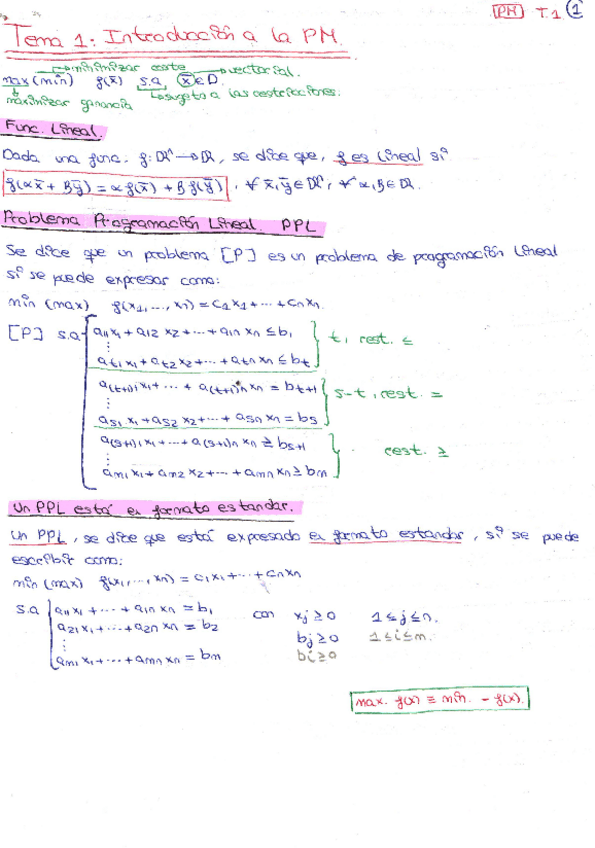 PM T.1 1
Tema 1: Introducción a la PM.
→minimizar coste →vectorial.
max (min) f(x̄) s.a x̄∈D
↓maximizar ganancia ↳sujeto a las restricciones.
Func. Lineal.
Dada una func. f: ℝⁿ → ℝ, se dice que, f es lineal si
f(αx̄ + βȳ) = αf(x̄) + βf(ȳ), ∀ x̄,ȳ∈ℝⁿ, ∀ α,β∈ℝ.
Problema Programación Lineal. PPL
Se dice que un problema [P] es un problema de programación lineal
si se puede expresar como:
min (max) f(x₁,...,xₙ) = c₁x₁+...+cₙxₙ.
[P] s.a a₁₁x₁ + a₁₂x₂ +...+ a₁ₙxₙ ≤ b₁
⋮ t, rest. ≤
aₜ₁x₁ + aₜ₂x₂ +...+ aₜₙxₙ ≤ bₜ
a₍ₜ₊₁₎₁x₁ + ... + a₍ₜ₊₁₎ₙxₙ = bₜ₊₁
⋮ s-t, rest. =
aₛ₁x₁ + aₛ₂x₂ +...+ aₛₙxₙ = bₛ
a₍ₛ₊₁₎₁x₁ +...+ a₍ₛ₊₁₎ₙxₙ ≥ bₛ₊₁
⋮ rest. ≥
aₘ₁x₁ + aₘ₂x₂ +...+ aₘₙxₙ ≥ bₘ
Un PPL está en formato estandar.
Un PPL, se dice que está expresado en formato estandar, si se puede
escribir como:
min (max) f(x₁,...,xₙ) = c₁x₁+...+cₙxₙ
s.a a₁₁x₁ +...+ a₁ₙxₙ = b₁ con xⱼ ≥ 0 1≤j≤n.
a₂₁x₁ +...+ a₂ₙxₙ = b₂ bⱼ ≥ 0 1≤i≤m.
⋮ bᵢ ≥ 0
aₘ₁x₁ +...+ aₘₙxₙ = bₘ
max. f(x) ≡ min. - f(x).